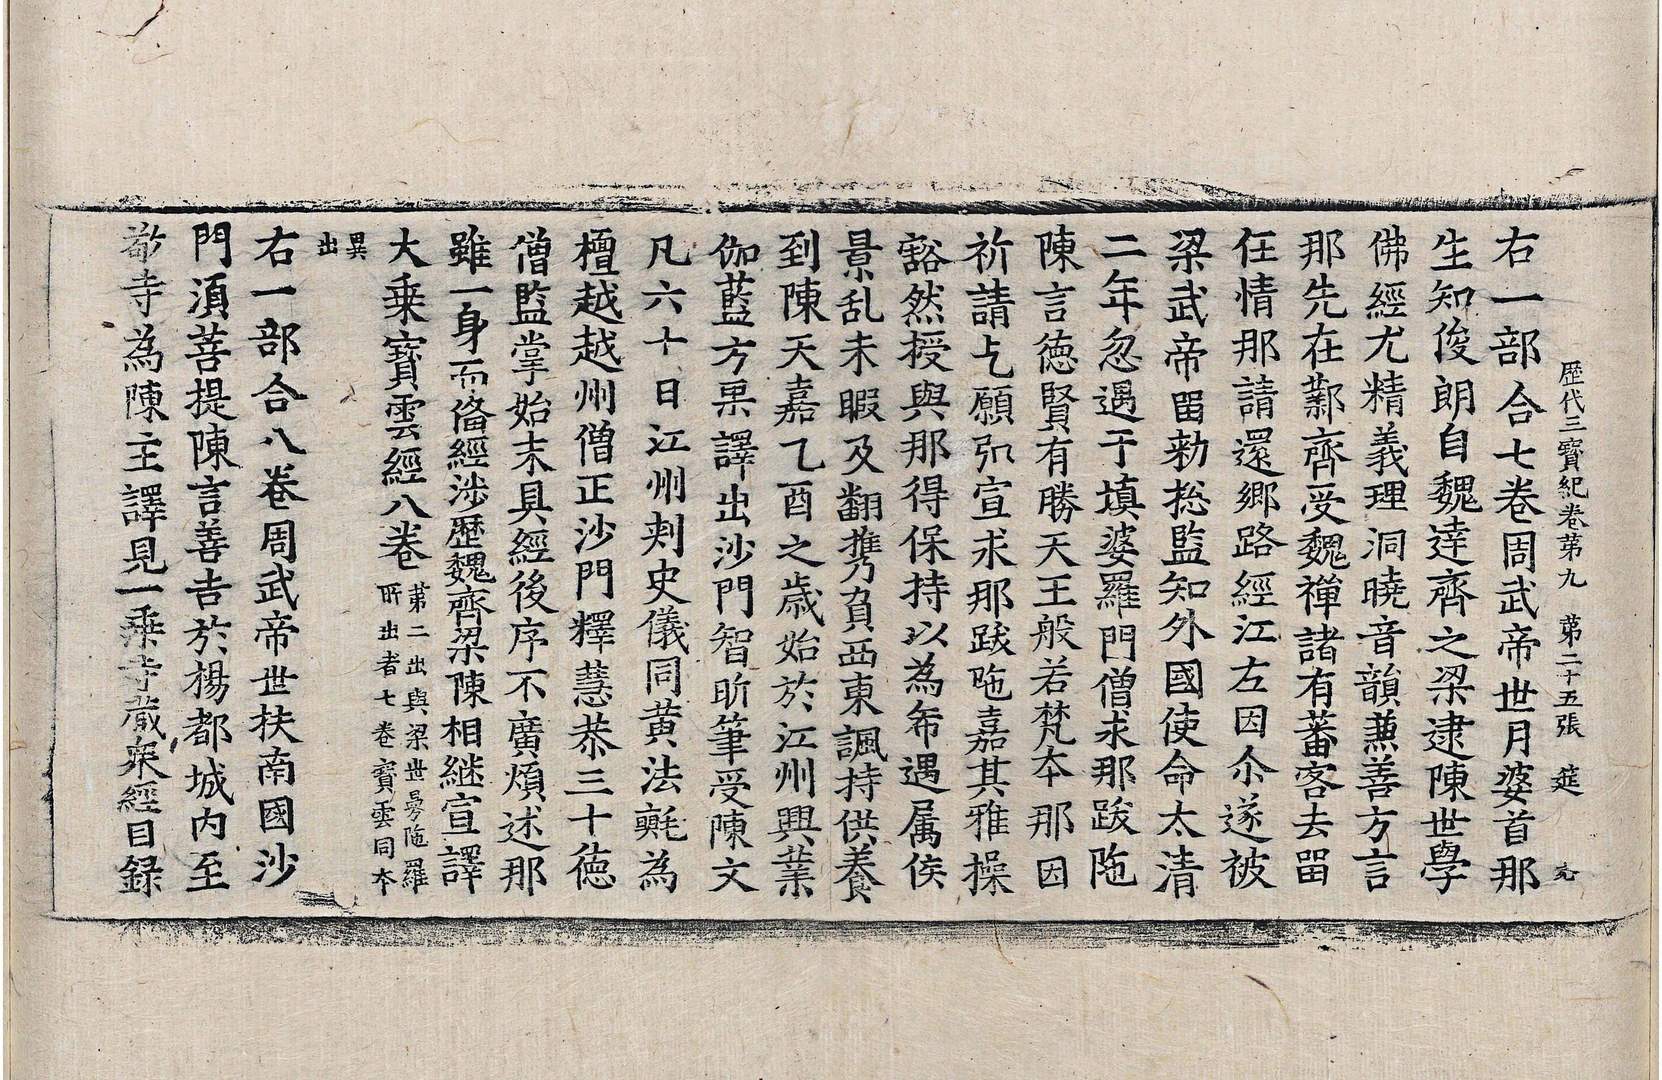 歷代三寶紀卷第九 第二十五張 筵 㐬
右一部合七卷周武帝世月婆首那
生知俊朗自魏達齊之梁逮陳世學
佛經尤精義理洞曉音韻兼善方言
那先在鄴齊受魏禪諸有蕃客去留
任情那請還鄉路經江左因尒遂被
梁武帝留勑捴監知外國使命太清
二年忽遇于填婆羅門僧求那跋陁
陳言德賢有勝天王般若梵本那因
祈請乞願弘宣求那跋陁嘉其雅操
豁然授與那得保持以為希遇属侯
景乱未暇及翻携負西東諷持供養
到陳天嘉乙酉之歲始於江州興業
伽藍方果譯出沙門智昕筆受陳文
凡六十日江州刾史儀同黄法𣰰為
檀越越州僧正沙門釋慧恭三十德
僧監掌始末具經後序不廣煩述那
雖一身而俻經涉歷魏齊梁陳相継宣譯
大乗寳雲經八卷第二出與梁世曼陁羅
所出者七卷寳雲同本
異
出
右一部合八卷周武帝世扶南國沙
門湏菩提陳言善吉於楊都城内至
敬寺為陳主譯見一乗寺蔵衆經目録